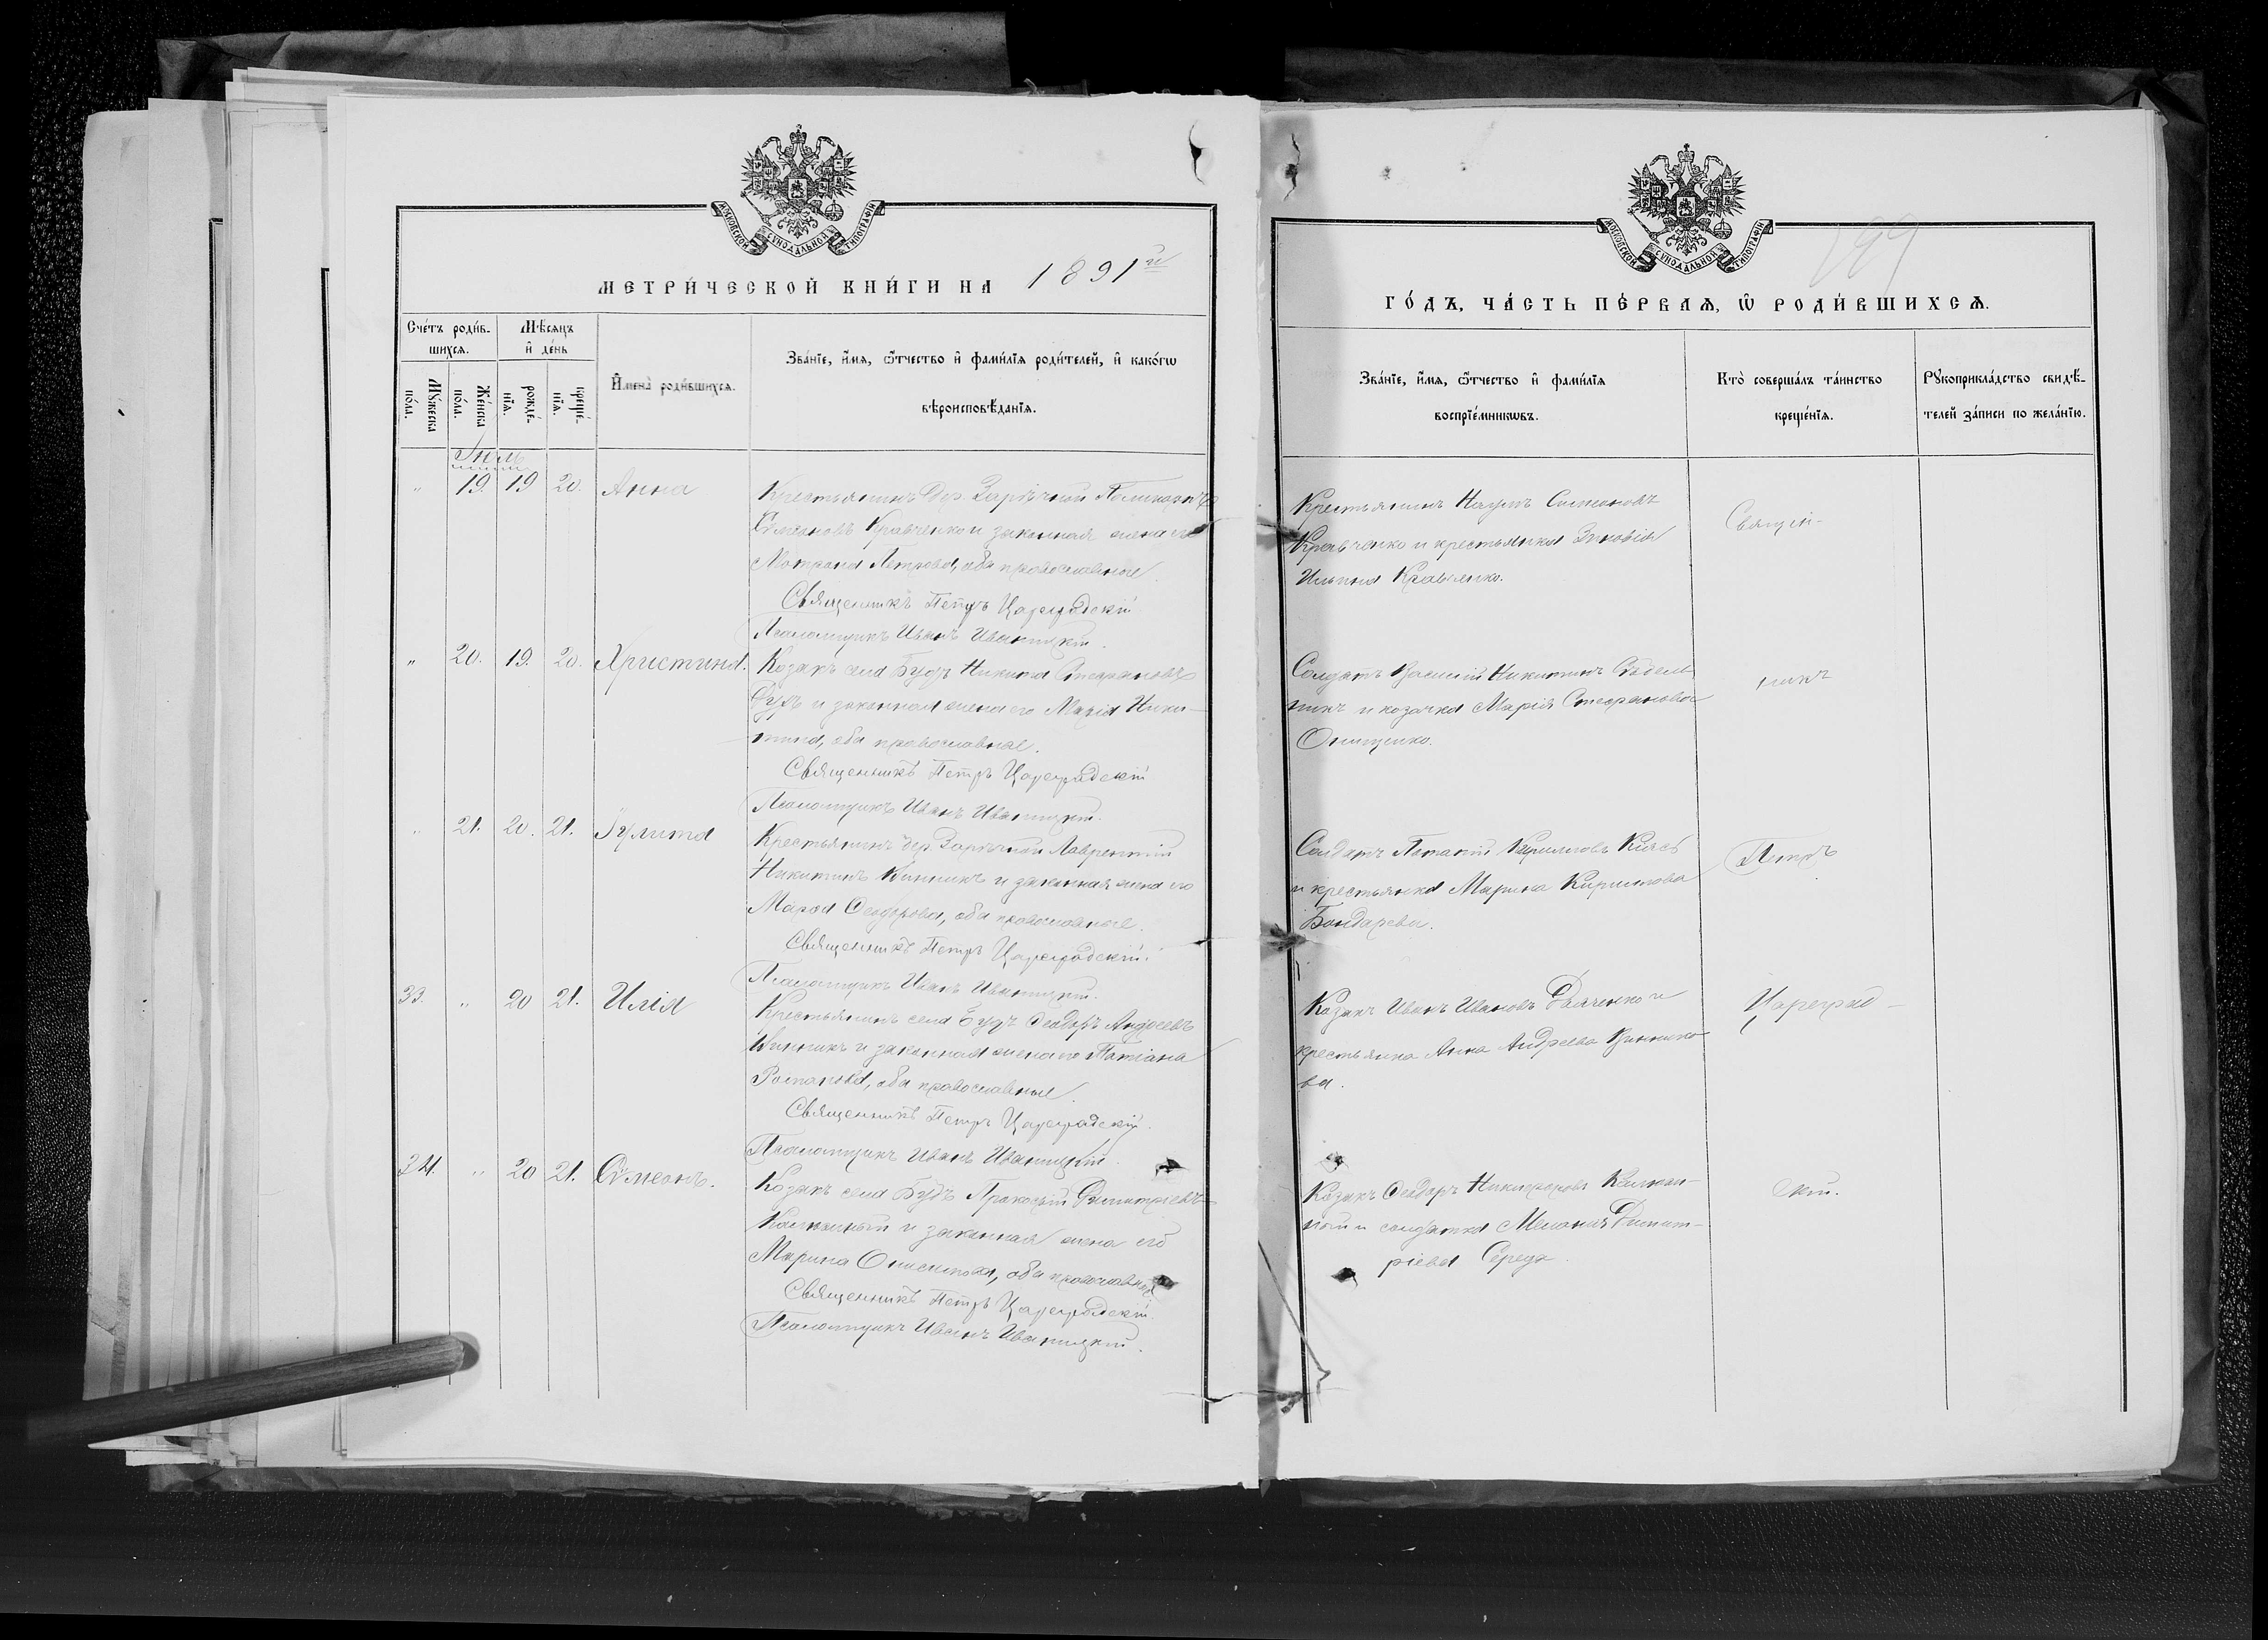 МОСКОВСКОЙ СУНОДАЛЬНОЙ ТИПОГРАФІИ
МЕТРИ́ЧЕСКОЙ КНИ́ГИ НА 1891й
Сче́тъ роди́в-
шихсѧ.
Мѣ́сѧцъ
и҆ де́нь
Мꙋ́жеска
по́ла.
Же́нска
по́ла.
рожде́-
нїѧ.
креще́-
нїѧ.
И҆мена̀ роди́вшихсѧ.
Зва́нїе, и҆́мѧ, ѻ҆́тчество и҆ фами́лїѧ роди́телей, и҆ како́гѡ
вѣроисповѣ́данїѧ.
" 19. 19 20. Анна
Крестьянинъ дер Зарѣчной
Семеновъ Кравченко и законная жена его
Мотрона Петрова, оба православные.
Священникъ Петръ Цареградскій
Псаломщикъ Иванъ Иваницкій.
" 20. 19. 20. Христина.
Козакъ села Будъ Никита Стефановъ
и законная жена его Марія Ники-
тина, оба православные.
Священникъ Петръ Цареградскій
Псаломщикъ Иванъ Иваницкій.
" 21. 20. 21. Іулита
Крестьянинъ дер Зарѣчной Лаврентій
Никитинъ Винникъ и законная жена его
Ѳеодорова, оба православные.
Священникъ Петръ Цареградскій.
Псаломщикъ Иванъ Иваницкій.
33. " 20 21. Илія
Крестьянинъ села Будъ Ѳеодоръ Андреевъ
Винникъ и законная жена его Татіана
Романова, оба православные.
Священникъ Петръ Цареградскій.
Псаломщикъ Иванъ Иваницкій.
34. " 20 21. Сѵмеонъ.
Козакъ села Будъ Прокопій Димитріевъ
и законная жена его
Марина оба православные
Священникъ Петръ Цареградскій.
Псаломщикъ Иванъ Иваницкій.
МОСКОВСКОЙ СУНОДАЛЬНОЙ ТИПОГРАФІИ
199
ГО́ДЪ, ЧА́СТЬ ПЕ́РВАѦ, Ѡ҆ РОДИ́ВШИХСѦ.
Зва́нїе, и҆́мѧ, ѻ҆́тчество и҆ фами́лїѧ
воспрїе́мникѡвъ.
Кто̀ соверша́лъ та́инство
креще́нїѧ.
Рꙋкоприкла́дство свидѣ́-
телей за́писи по жела́нїю.
Крестьянинъ Наумъ Симеоновъ
Кравченко и крестьянка Зиновія
Ильина Кравченко.
Священ-
Солдатъ Василій Никитинъ
никъ и козачка Марія Стефанова
Онищенко.
никъ
Солдатъ Потапій Кирилловъ
и крестьянка Марина Кириллова
Бондарева.
Петръ
Козакъ Иванъ Ивановъ Дьяченко и
крестьянка Анна Андреева Виннико
ва.
Цареград-
Козакъ Ѳеодоръ Никифоровъ
ный и солдатка Меланія Димит-
ріева Середа.
скій.